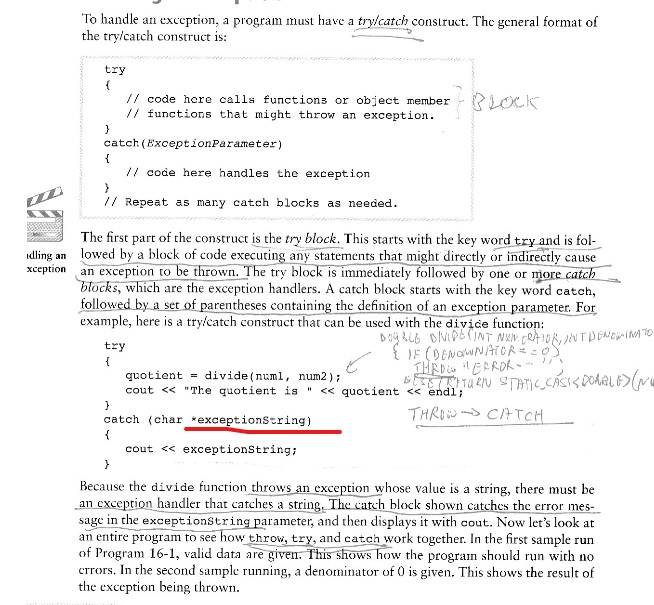 To handle an exception, a program must have a try/catch construct. The general format of
the try/catch construct is:
try
{
// code here calls functions or object member
// functions that might throw an exception.
} BLOCK
}
catch(ExceptionParameter)
{
// code here handles the exception
}
// Repeat as many catch blocks as needed.
dling an
xception
The first part of the construct is the try block. This starts with the key word try and is fol-
lowed by a block of code executing any statements that might directly or indirectly cause
an exception to be thrown. The try block is immediately followed by one or more catch
blocks, which are the exception handlers. A catch block starts with the key word catch,
followed by a set of parentheses containing the definition of an exception parameter. For
example, here is a try/catch construct that can be used with the divide function:
try
{
quotient = divide(num1, num2);
cout << "The quotient is " << quotient << endl;
}
catch (char *exceptionString)
{
cout << exceptionString;
}
DOUBLE DIVIDE(INT NUMERATOR, INT DENOMINATO
{ IF (DENOMINATOR == 0)
THROW "ERROR
ELSE RETURN STATIC_CAST<DOUBLE>(NU
THROW → CATCH
Because the divide function throws an exception whose value is a string, there must be
an exception handler that catches a string. The catch block shown catches the error mes-
sage in the exceptionString parameter, and then displays it with cout. Now let's look at
an entire program to see how throw, try, and catch work together. In the first sample run
of Program 16-1, valid data are given. This shows how the program should run with no
errors. In the second sample running, a denominator of 0 is given. This shows the result of
the exception being thrown.